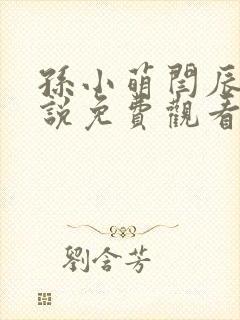 孫小萌閆辰
說免費觀看
劉含芳